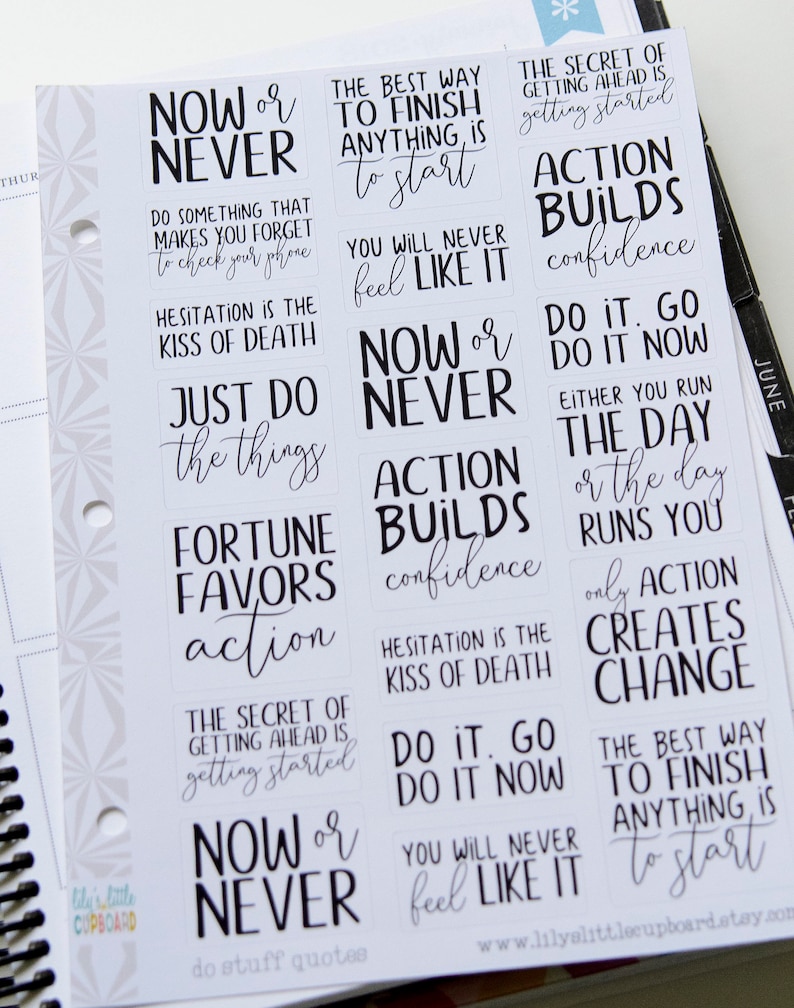 THUR
NOW or
NEVER
DO SOMETHING THAT
MAKES YOU FORGET
to check your phone
HESITATION IS THE
KISS OF DEATH
JUST DO
the things
FORTUNE
FAVORS
action
THE SECRET OF
GETTING AHEAD IS
getting started
NOW or
NEVER
THE BEST WAY
TO FINISH
ANYTHING IS
to start
YOU WILL NEVER
feel LIKE IT
NOW or
NEVER
ACTION
BUILDS
confidence
HESITATION IS THE
KISS OF DEATH
DO IT. GO
DO IT NOW
YOU WILL NEVER
feel LIKE IT
THE SECRET OF
GETTING AHEAD IS
getting started
ACTION
BUILDS
confidence
DO IT. GO
DO IT NOW
EITHER YOU RUN
THE DAY
or the day
RUNS YOU
only ACTION
CREATES
CHANGE
THE BEST WAY
TO FINISH
ANYTHING IS
to start
JUNE
lily's little
CUPBOARD
do stuff quotes
www.lilyslittlecupboard.etsy.com